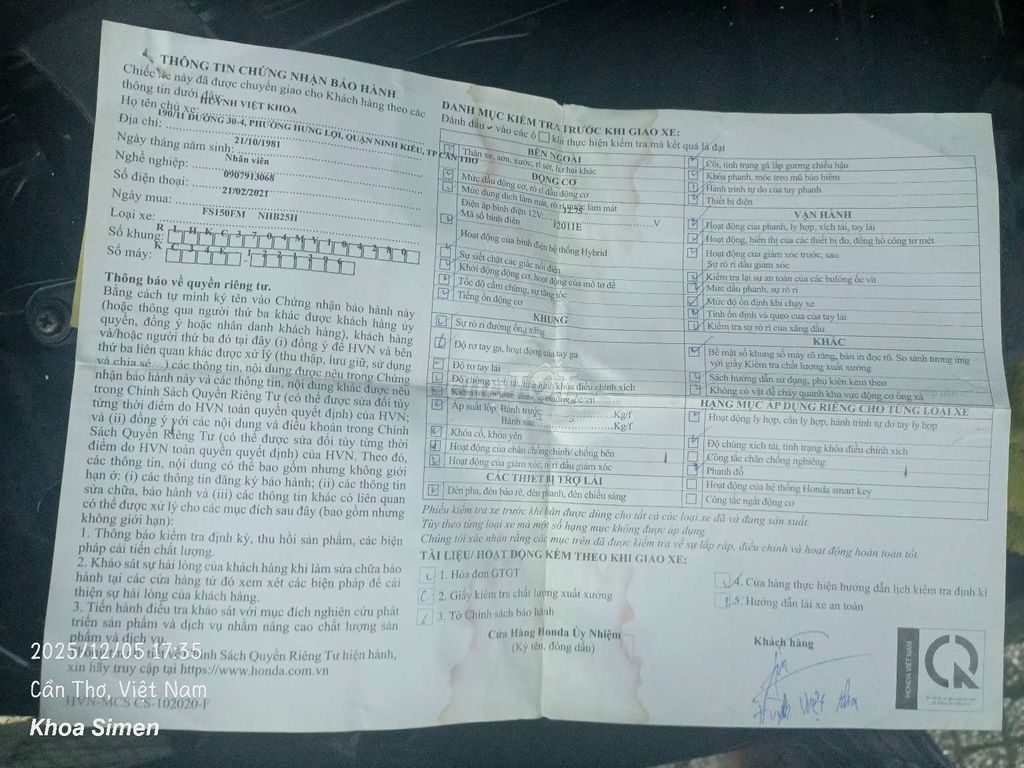 THÔNG TIN CHỨNG NHẬN BẢO HÀNH
Chiếc xe này đã được chuyển giao cho Khách hàng theo các
thông tin dưới đây:
Họ tên chủ xe: HUỲNH VIỆT KHOA
Địa chỉ: 190/11 ĐƯỜNG 30-4, PHƯỜNG HƯNG LỢI, QUẬN NINH KIỀU, TP CẦN THƠ
Ngày tháng năm sinh: 21/10/1981
Nghề nghiệp: Nhân viên
Số điện thoại: 0907913068
Ngày mua: 21/02/2021
Loại xe: FS150FM NHB25H
Số khung:
Số máy:
Thông báo về quyền riêng tư.
Bằng cách tự mình ký tên vào Chứng nhận bảo hành này
(hoặc thông qua người thứ ba khác được khách hàng ủy
quyền, đồng ý hoặc nhân danh khách hàng), khách hàng
và/hoặc người thứ ba đó tại đây (i) đồng ý để HVN và bên
thứ ba liên quan khác được xử lý (thu thập, lưu giữ, sử dụng
và chia sẻ ...) các thông tin, nội dung được nêu trong Chứng
nhận bảo hành này và các thông tin, nội dung khác được nêu
trong Chính Sách Quyền Riêng Tư (có thể được sửa đổi tùy
từng thời điểm do HVN toàn quyền quyết định) của HVN;
và (ii) đồng ý với các nội dung và điều khoản trong Chính
Sách Quyền Riêng Tư (có thể được sửa đổi tùy từng thời
điểm do HVN toàn quyền quyết định) của HVN. Theo đó,
các thông tin, nội dung có thể bao gồm nhưng không giới
hạn ở: (i) các thông tin đăng ký bảo hành; (ii) các thông tin
sửa chữa, bảo hành và (iii) các thông tin khác có liên quan
có thể được xử lý cho các mục đích sau đây (bao gồm nhưng
không giới hạn):
1. Thông báo kiểm tra định kỳ, thu hồi sản phẩm, các biện
pháp cải tiến chất lượng.
2. Khảo sát sự hài lòng của khách hàng khi làm sửa chữa bảo
hành tại các cửa hàng từ đó xem xét các biện pháp để cải
thiện sự hài lòng của khách hàng.
3. Tiến hành điều tra khảo sát với mục đích nghiên cứu phát
triển sản phẩm và dịch vụ nhằm nâng cao chất lượng sản
phẩm và dịch vụ.
Sách Quyền Riêng Tư hiện hành,
xin hãy truy cập tại https://www.honda.com.vn
HVN-MCS CS-102020-F
DANH MỤC KIỂM TRA TRƯỚC KHI GIAO XE:
Đánh dấu ✓ vào các ô □ khi thực hiện kiểm tra mà kết quả là đạt
BÊN NGOÀI
Thân xe, sơn, xước, rỉ sét, hư hại khác
ĐỘNG CƠ
Mức dầu động cơ, rò rỉ dầu động cơ
Mức dung dịch làm mát, rò rỉ nước làm mát
Điện áp bình điện 12V: 12.75 V
Mã số bình điện 12011E
Hoạt động của bình điện hệ thống Hybrid
Sự siết chặt các giắc nối điện
Khởi động động cơ, hoạt động của mô tơ đề
Tốc độ cầm chừng, sự tăng tốc
Tiếng ồn động cơ
KHUNG
Sự rò rỉ đường ống xăng
Độ rơ tay ga, hoạt động của tay ga
Độ rơ tay lái
Độ chùng xích tải, tình hình khóa điều chỉnh xích
Áp suất lốp: Bánh trước: Kg/f
Bánh sau: Kg/f
Khóa cổ, khóa yên
Hoạt động của chân chống chính/ chống bên
Hoạt động của giảm xóc, rò rỉ dầu giảm xóc
CÁC THIẾT BỊ TRỢ LÁI
Đèn pha, đèn báo rẽ, đèn phanh, đèn chiếu sáng
Còi, tình trạng gá lắp gương chiếu hậu
Khóa phanh, móc treo mũ bảo hiểm
Hành trình tự do của tay phanh
Thiết bị điện
VẬN HÀNH
Hoạt động của phanh, ly hợp, xích tải, tay lái
Hoạt động, hiển thị của các thiết bị đo, đồng hồ công tơ mét
Hoạt động của giảm xóc trước, sau.
Sự rò rỉ dầu giảm xóc
Kiểm tra lại sự an toàn của các bulông ốc vít
Mức dầu phanh, sự rò rỉ
Mức độ ổn định khi chạy xe
Tính ổn định và quẹo cua của tay lái
Kiểm tra sự rò rỉ của xăng dầu
KHÁC
Bề mặt số khung số máy rõ ràng, bản in đọc rõ. So sánh tương ứng
với giấy Kiểm tra chất lượng xuất xưởng
Sách hướng dẫn sử dụng, phụ kiện kèm theo
Không có vật dễ cháy quanh khu vực động cơ ống xả
HẠNG MỤC ÁP DỤNG RIÊNG CHO TỪNG LOẠI XE
Hoạt động ly hợp, cần ly hợp, hành trình tự do tay ly hợp
Độ chùng xích tải, tình trạng khóa điều chỉnh xích
Công tắc chân chống nghiêng
Phanh đỗ
Hoạt động của hệ thống Honda smart key
Công tắc ngắt động cơ
Phiếu kiểm tra xe trước khi bán được dùng cho tất cả các loại xe đã và đang sản xuất.
Tùy theo từng loại xe mà một số hạng mục không được áp dụng.
Chúng tôi xác nhận rằng các mục trên đã được kiểm tra về sự lắp ráp, điều chỉnh và hoạt động hoàn toàn tốt.
TÀI LIỆU/ HOẠT ĐỘNG KÈM THEO KHI GIAO XE:
1. Hóa đơn GTGT
2. Giấy kiểm tra chất lượng xuất xưởng
3. Tờ Chính sách bảo hành
4. Cửa hàng thực hiện hướng dẫn lịch kiểm tra định kì
5. Hướng dẫn lái xe an toàn
Cửa Hàng Honda Ủy Nhiệm
(Ký tên, đóng dấu)
Khách hàng
Huỳnh Việt Khoa
HONDA VIỆT NAM
2025/12/05 17:35
Cần Thơ, Việt Nam
Khoa Simen